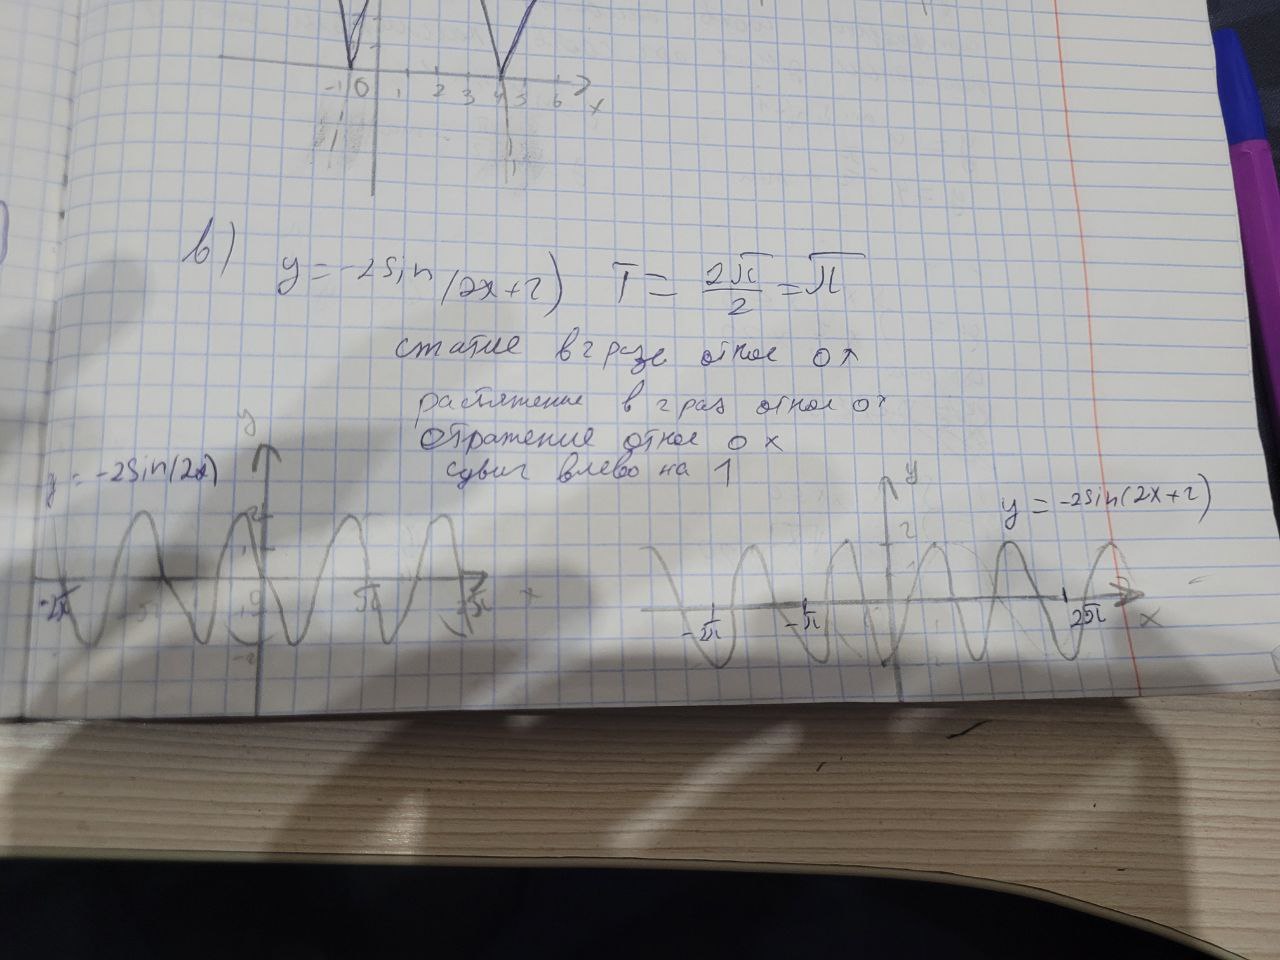 -1 0 1 2 3 4 5 6 x
в)
y = -2sin(2x+2) T = 2π/2 = π
сжатие в 2 раза относ ox
растяжение в 2 раз относ ox
отражение относ ox
сдвиг влево на 1
y
y = -2sin(2x)
y
y = -2sin(2x+2)
2
2
-2π π 2π x
-2π -π 2π x
-2